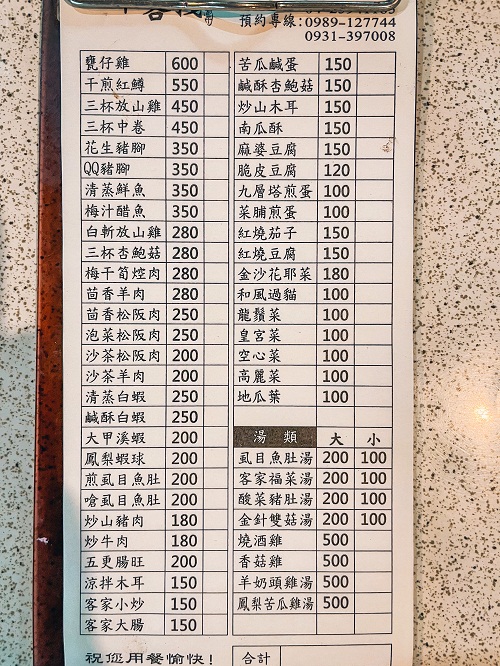 預約專線:0989-127744
0931-397008
甕仔雞 600
干煎紅鱒 550
三杯放山雞 450
三杯中卷 450
花生豬腳 350
QQ豬腳 350
清蒸鮮魚 350
梅汁醋魚 350
白斬放山雞 280
三杯杏鮑菇 280
梅干筍焢肉 280
茴香羊肉 280
茴香松阪肉 250
泡菜松阪肉 250
沙茶松阪肉 200
沙茶羊肉 200
清蒸白蝦 250
鹹酥白蝦 250
大甲溪蝦 200
鳳梨蝦球 200
煎虱目魚肚 200
嗆虱目魚肚 200
炒山豬肉 180
炒牛肉 180
五更腸旺 200
涼拌木耳 150
客家小炒 150
客家大腸 150
苦瓜鹹蛋 150
鹹酥杏鮑菇 150
炒山木耳 150
南瓜酥 150
麻婆豆腐 150
脆皮豆腐 120
九層塔煎蛋 100
菜脯煎蛋 100
紅燒茄子 150
紅燒豆腐 150
金沙花耶菜 180
和風過貓 100
龍鬚菜 100
皇宮菜 100
空心菜 100
高麗菜 100
地瓜葉 100
湯 類 大 小
虱目魚肚湯 200 100
客家福菜湯 200 100
酸菜豬肚湯 200 100
金針雙菇湯 200 100
燒酒雞 500
香菇雞 500
羊奶頭雞湯 500
鳳梨苦瓜雞湯 500
祝您用餐愉快!
合計